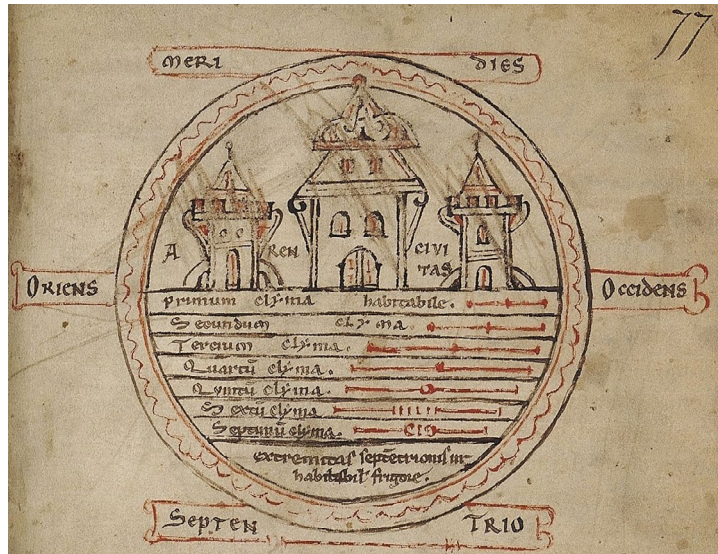 77
MERI DIES
A REN CIVI
TAS
ORIENS OCCIDENS
primum clyma habitabile.
Secundum clyma.
Tercium clyma.
Quartū clyma.
Quintū clyma.
Sextū clyma
Septimū clyma.
extremitas septētrionis in
habitabil' frigore.
SEPTEN TRIO